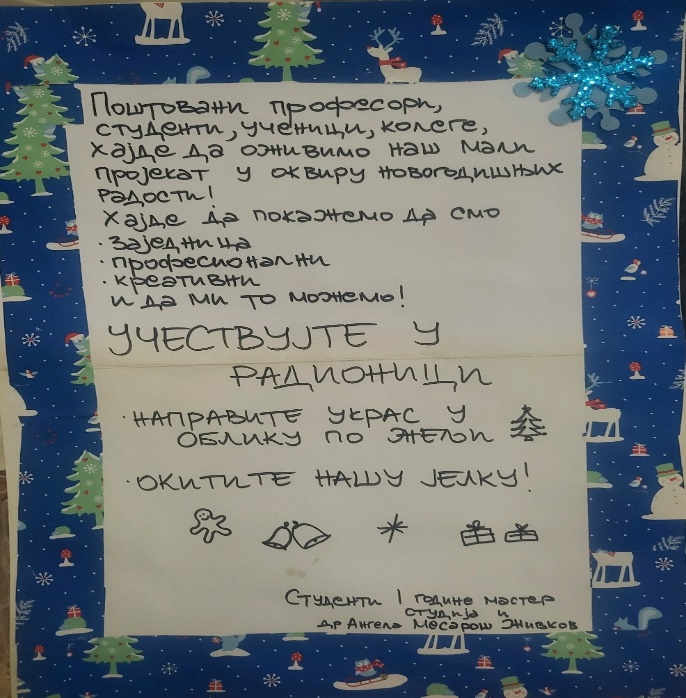 Поштовани професори,
студенти, ученици, колеге,
хајде да оживимо наш мали
пројекат у оквиру новогодишњих
радости!
Хајде да покажемо да смо
· заједница
· професионални
· креативни
и да ми то можемо!
УЧЕСТВУЈТЕ У
РАДИОНИЦИ
· НАПРАВИТЕ УКРАС У
ОБЛИКУ ПО ЖЕЉИ
· ОКИТИТЕ НАШУ ЈЕЛКУ!
Студенти I године мастер
студија и
др Ангела Месарош Живков